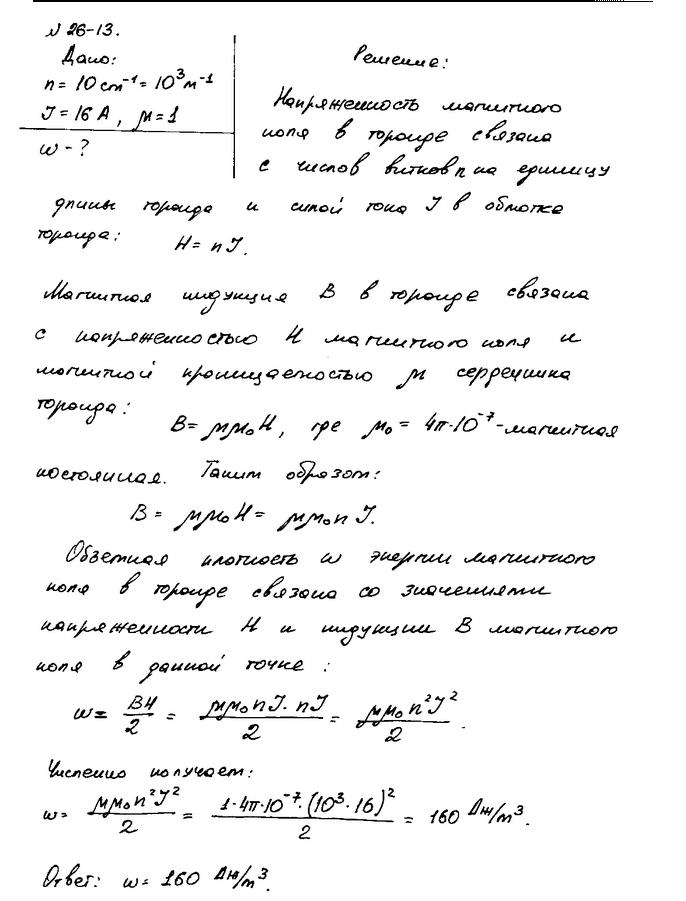 N 26-13.
Дано:
n = 10 cm⁻¹ = 10³ м⁻¹
J = 16 A, μ = 1
w - ?
Решение:
Напряженность магнитного
поля в тороиде связана
с числов витков n на единицу
длины тороида и силой тока J в обмотке
тороида: H = nJ.
Магнитная индукция B в тороиде связана
с напряженностью H магнитного поля и
магнитной проницаемостью μ сердечника
тороида: B = μμ₀H, где μ₀ = 4π·10⁻⁷ - магнитная
постоянная. Таким образом:
B = μμ₀H = μμ₀nJ.
Объемная плотность w энергии магнитного
поля в тороиде связана со значениями
напряженности H и индукции B магнитного
поля в данной точке:
w = BH/2 = μμ₀nJ·nJ/2 = μμ₀n²J²/2.
Численно получаем:
w = μμ₀n²J²/2 = 1·4π·10⁻⁷·(10³·16)²/2 = 160 Дж/m³.
Ответ: w = 160 Дж/m³.